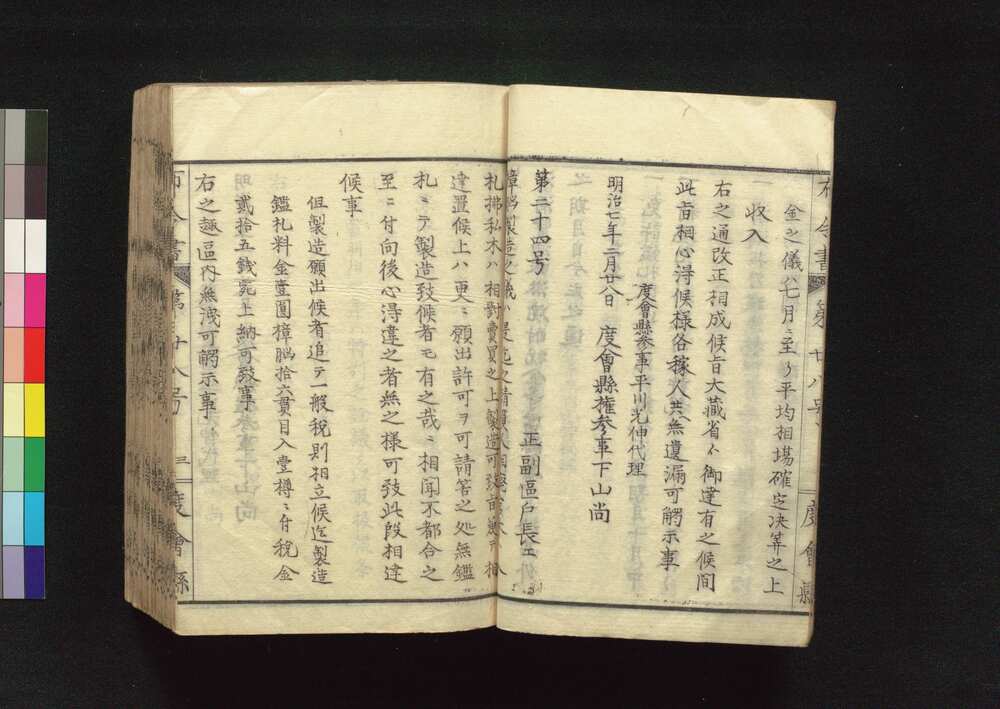 布令書 第廿八号 度會縣
金之儀ハ七月ニ至リ平均相場確定決筭之上
収入
右之通改正相成候旨大藏省ゟ御達有之候間
此旨相心淂候様各稼人共無遺漏可觸示事
度會縣參事平川光伸代理
明治七年二月廿八日 度會縣権參事下山尚
第二十四号 正副區戸長エ
樟脳製造之儀ハ
札拂私木ハ相對賣買之上製造可致旨 相
達置候上ハ更ニ願出許可ヲ可請筈之処無鑑
札ニテ製造致候者モ有之哉ニ相聞不都合之
至ニ付向後心淂違之者無之様可致此段相達
候事
但製造願出候者追テ一般税則相立候迄製造
鑑札料金壹圓樟脳拾六貫目入壹樽ニ付税金
貳拾五錢宛上納可致事
右之趣區内無洩可觸示事
布令書 第廿八号 三 度會縣